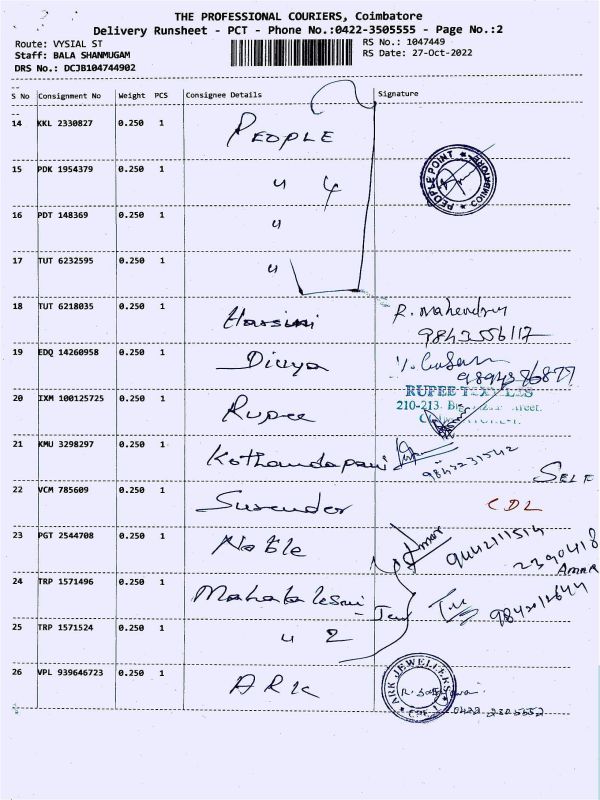 THE PROFESSIONAL COURIERS, Coimbatore
Delivery Runsheet - PCT - Phone No.:0422-3505555 - Page No.:2
Route: VYSIAL ST
RS No.: 1047449
Staff: BALA SHANMUGAM
RS Date: 27-Oct-2022
DRS No.: DCJB104744902
S No Consignment No Weight PCS Consignee Details Signature
14 KKL 2330827 0.250 1 PEOPLE
15 PDK 1954379 0.250 1 " 4
PEOPLE POINT * COIMBATORE *
16 PDT 148369 0.250 1 "
17 TUT 6232595 0.250 1 "
18 TUT 6218035 0.250 1 Harsini R. Mahendran
9843556117
19 EDQ 14260958 0.250 1 Divya
9894386877
20 IXM 100125725 0.250 1 Rupee RUPEE TEXTILES
210-213. Street.
21 KMU 3298297 0.250 1 Kothandapani
9843231542
SELF
22 VCM 785609 0.250 1 Surender CDL
23 PGT 2544708 0.250 1 Noble Amar 9442111514
2390418
AMAR
24 TRP 1571496 0.250 1 Mahalaksmi
25 TRP 1571524 0.250 1 " 2
26 VPL 939646723 0.250 1 ARK ARK JEWELLERS